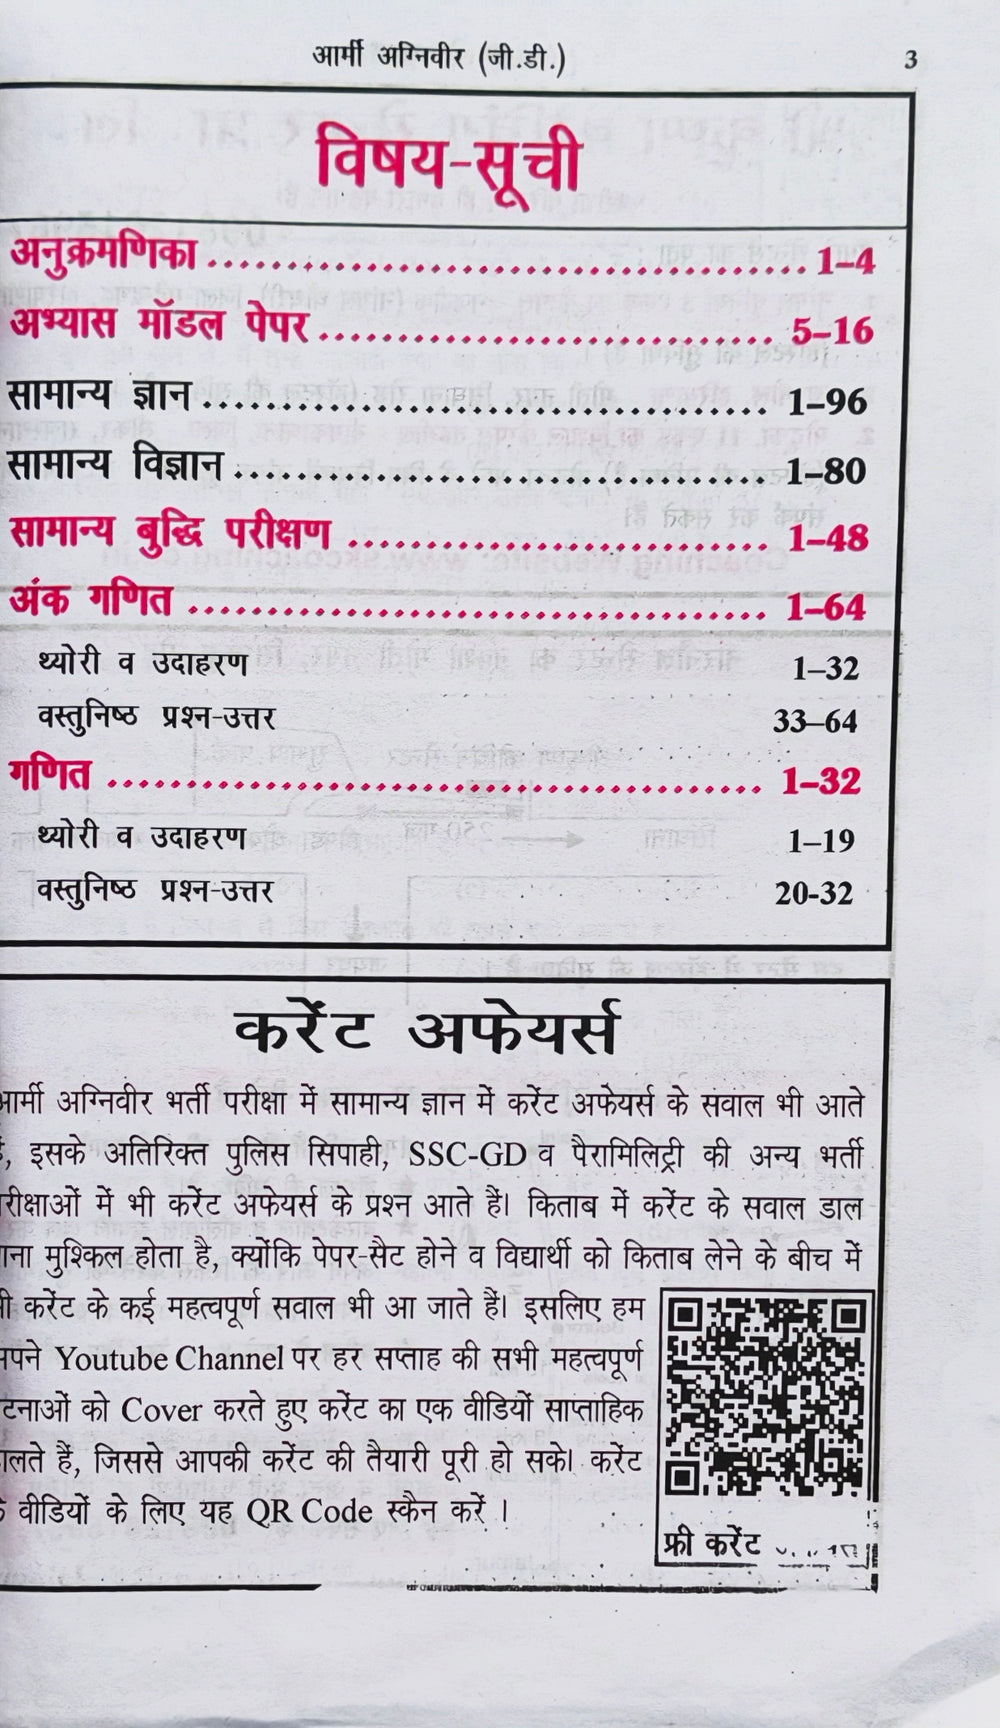 आर्मी अग्निवीर (जी.डी.) 3
विषय-सूची
अनुक्रमणिका 1–4
अभ्यास मॉडल पेपर 5–16
सामान्य ज्ञान 1–96
सामान्य विज्ञान 1–80
सामान्य बुद्धि परीक्षण 1–48
अंक गणित 1–64
थ्योरी व उदाहरण 1–32
वस्तुनिष्ठ प्रश्न-उत्तर 33–64
गणित 1–32
थ्योरी व उदाहरण 1–19
वस्तुनिष्ठ प्रश्न-उत्तर 20-32
करेंट अफेयर्स
अग्निवीर भर्ती परीक्षा में सामान्य ज्ञान में करेंट अफेयर्स के सवाल भी आते
इसके अतिरिक्त पुलिस सिपाही, SSC-GD व पैरामिलिट्री की अन्य भर्ती
में भी करेंट अफेयर्स के प्रश्न आते हैं। किताब में करेंट के सवाल डाल
मुश्किल होता है, क्योंकि पेपर-सैट होने व विद्यार्थी को किताब लेने के बीच में
करेंट के कई महत्वपूर्ण सवाल भी आ जाते हैं। इसलिए हम
Youtube Channel पर हर सप्ताह की सभी महत्वपूर्ण
को Cover करते हुए करेंट का एक वीडियों साप्ताहिक
हैं, जिससे आपकी करेंट की तैयारी पूरी हो सके। करेंट
वीडियों के लिए यह QR Code स्कैन करें ।
फ्री करेंट